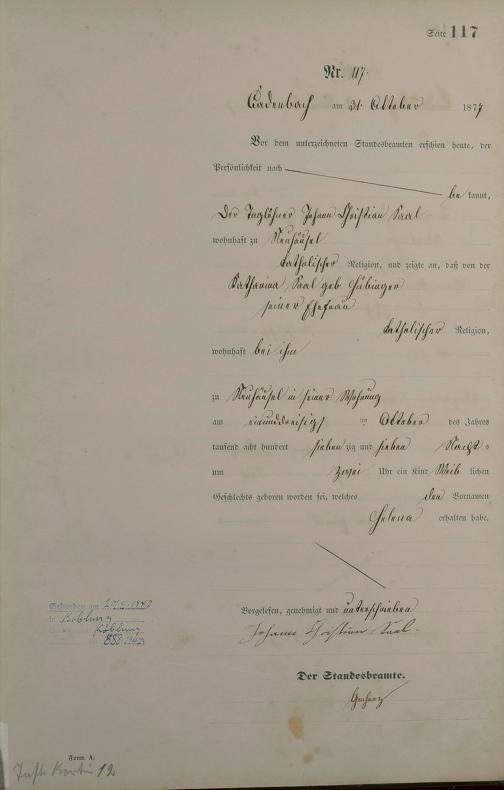 Seite 117
Nr. 117.
Cadenbach am 31. Oktober 1877
Vor dem unterzeichneten Standesbeamten erschien heute, der
Persönlichkeit nach
be kannt,
der Taglöhner Johann Christian Saal
wohnhaft zu Neuhäusel
katholischer Religion, und zeigte an, daß von der
Katharina Saal geb Hübinger
seiner Ehefrau
katholischer Religion,
wohnhaft bei ihm
zu Neuhäusel in seiner Wohnung
am einunddreisigst ten Oktober des Jahres
tausend acht hundert sieben zig und sieben Nachts
um zwei Uhr ein Kind Weib lichen
Geschlechts geboren worden sei, welches den Vornamen
Helena erhalten habe.
Vorgelesen, genehmigt und unterschrieben
Johann Christian Saal.
Der Standesbeamte.
Gestorben am
in Koblenz
Koblenz
Form. A.
12